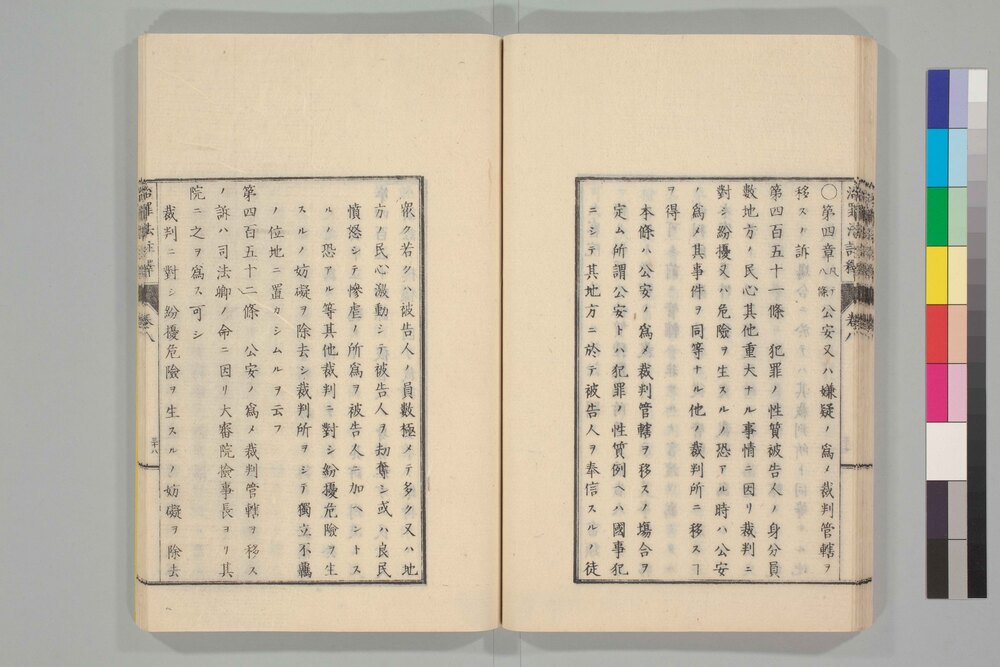 〇第四章 公安又ハ嫌疑ノ爲メ裁判管轄ヲ
移スノ訴
第四百五十一條 犯罪ノ性質被告人ノ身分員
數地方ノ民心其他重大ナル事情ニ因リ裁判ニ
對シ紛擾又ハ危險ヲ生スルノ恐アル時ハ公安
ノ爲メ其事件ヲ同等ナル他ノ裁判所ニ移スヿ
ヲ得
本條ハ公安ノ爲メ裁判管轄ヲ移スノ塲合ヲ
定ム所謂公安トハ犯罪ノ性質例ヘハ國事犯
ニシテ其地方ニ於テ被告人ヲ奉信スルノ徒
衆ク若クハ被告人ノ員數極メテ多ク又ハ地
方ノ民心激動シテ被告人ヲ劫奪シ或ハ良民
憤怒シテ慘虐ノ所爲ヲ被告人ニ加ヘントス
ルノ恐アル等其他裁判ニ對シ紛擾危險ヲ生
スルノ妨礙ヲ除去シ裁判所ヲシテ獨立不羈
ノ位地ニ置カシムルヲ云フ
第四百五十二條 公安ノ爲メ裁判管轄ヲ移ス
ノ訴ハ司法卿ノ命ニ因リ大審院檢事長ヨリ其
院ニ之ヲ爲ス可シ
裁判ニ對シ紛擾危險ヲ生スルノ妨礙ヲ除去